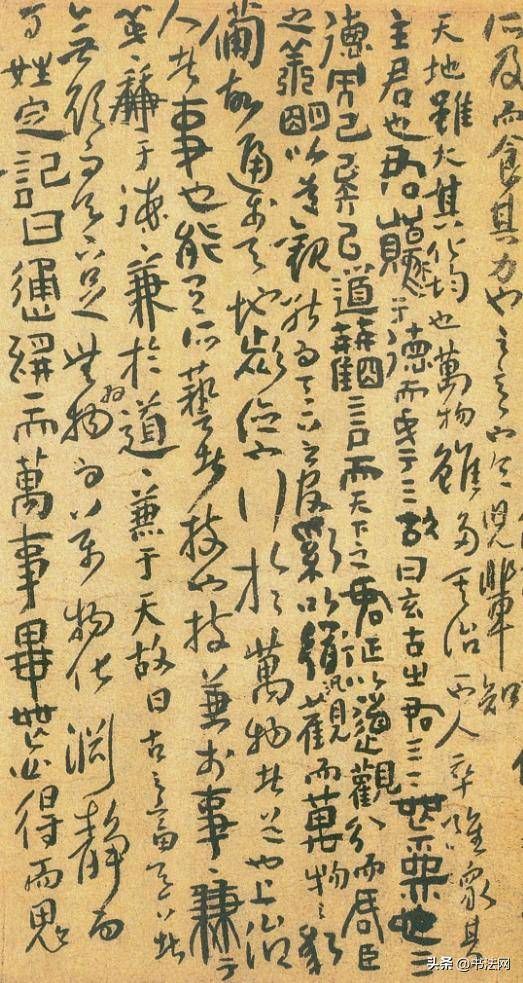 所及而食其力也
天地雖大其化均也萬物雖多其治一人卒雖眾其
主君也君原于德而成于天故曰玄古之君天下無為也天
德而已矣以道觀言而天下之君正以道觀分而君臣
之義明以道觀能而天下之官治以道汎觀而萬物之應
備故通於天地者德也行於萬物者道也上治
人者事也能有所藝者技也技兼於事〻兼于
義〻兼于德〻兼於道〻兼于天故曰古之畜天下者
無欲而天下足無為而萬物化淵靜而
百姓定記曰通於一而萬事畢無心得而鬼
头条 @书法网